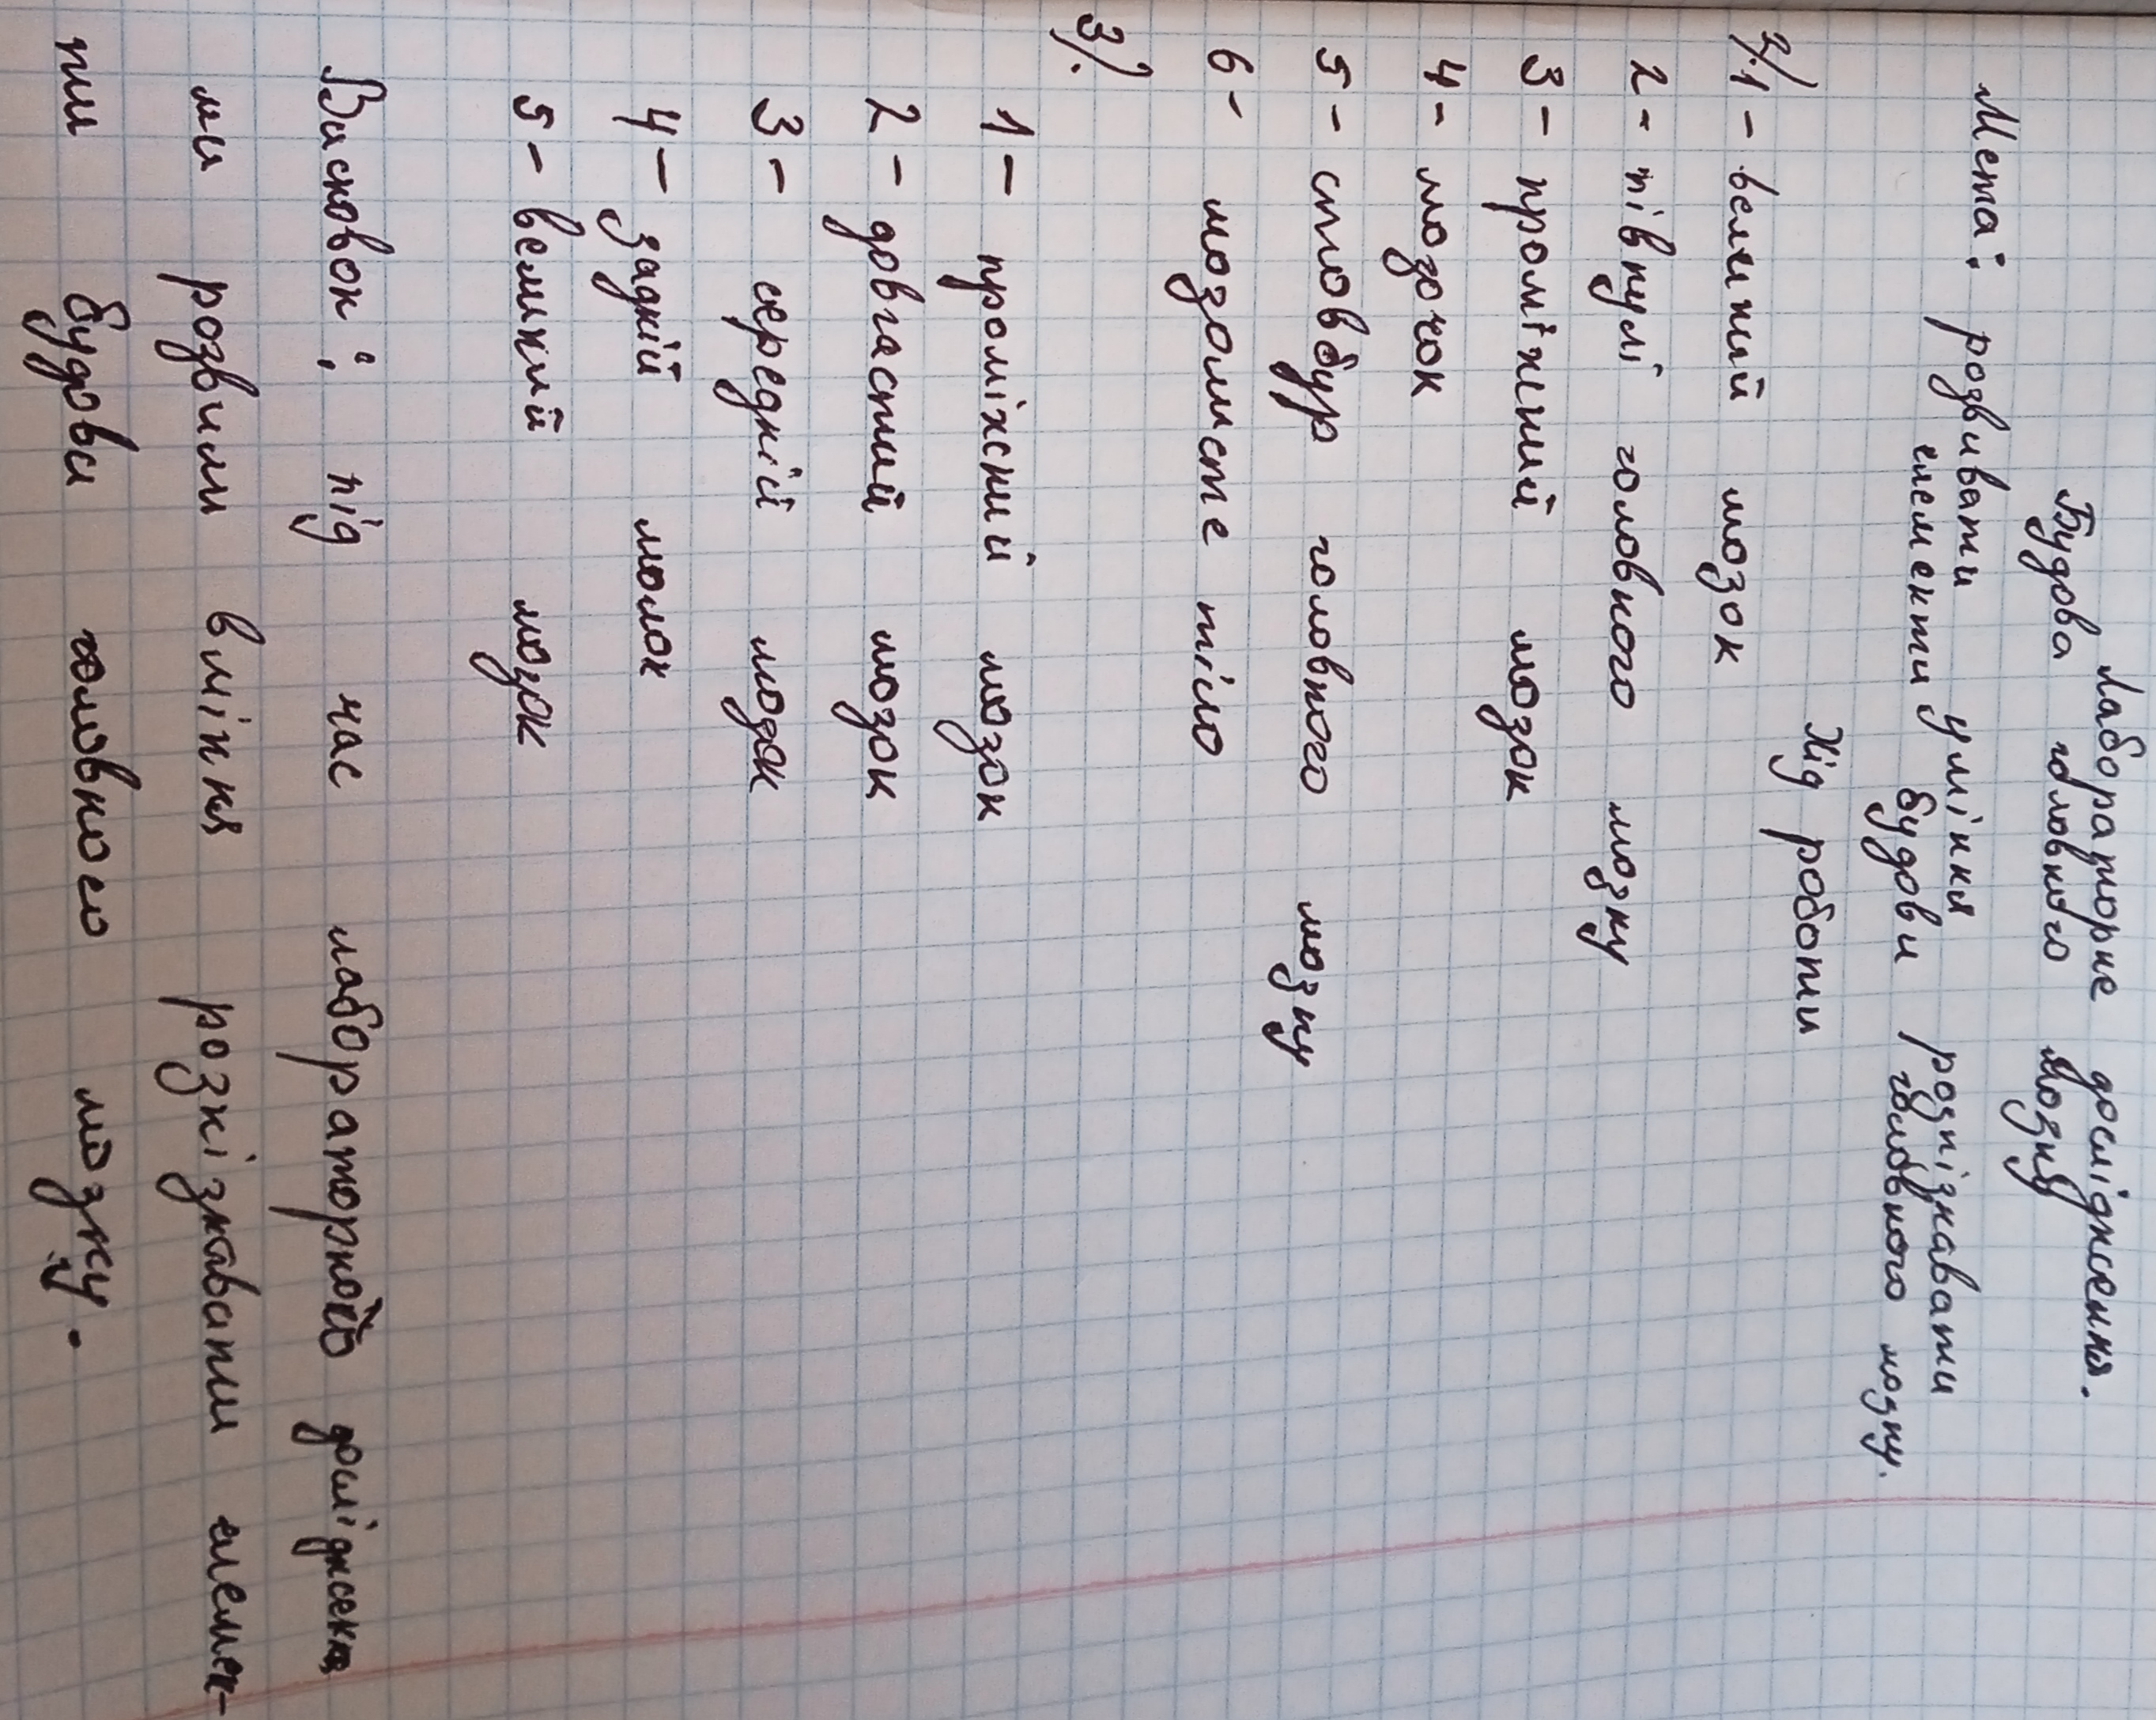 Лабораторне дослідження.
Будова головного мозку
Мета: розвивати уміння розпізнавати
елементи будови головного мозку.
Хід роботи
2). 1 - великий мозок
2 - півкулі головного мозку
3 - проміжний мозок
4 - мозочок
5 - стовбур головного мозку
6 - мозолисте тіло
3).
1 - проміжний мозок
2 - довгастий мозок
3 - середній мозок
4 - задній молок
5 - великий мозок
Висновок: під час лабораторного дослідження
ми розвили вміння розпізнавати елемен-
ти будови головного мозку.